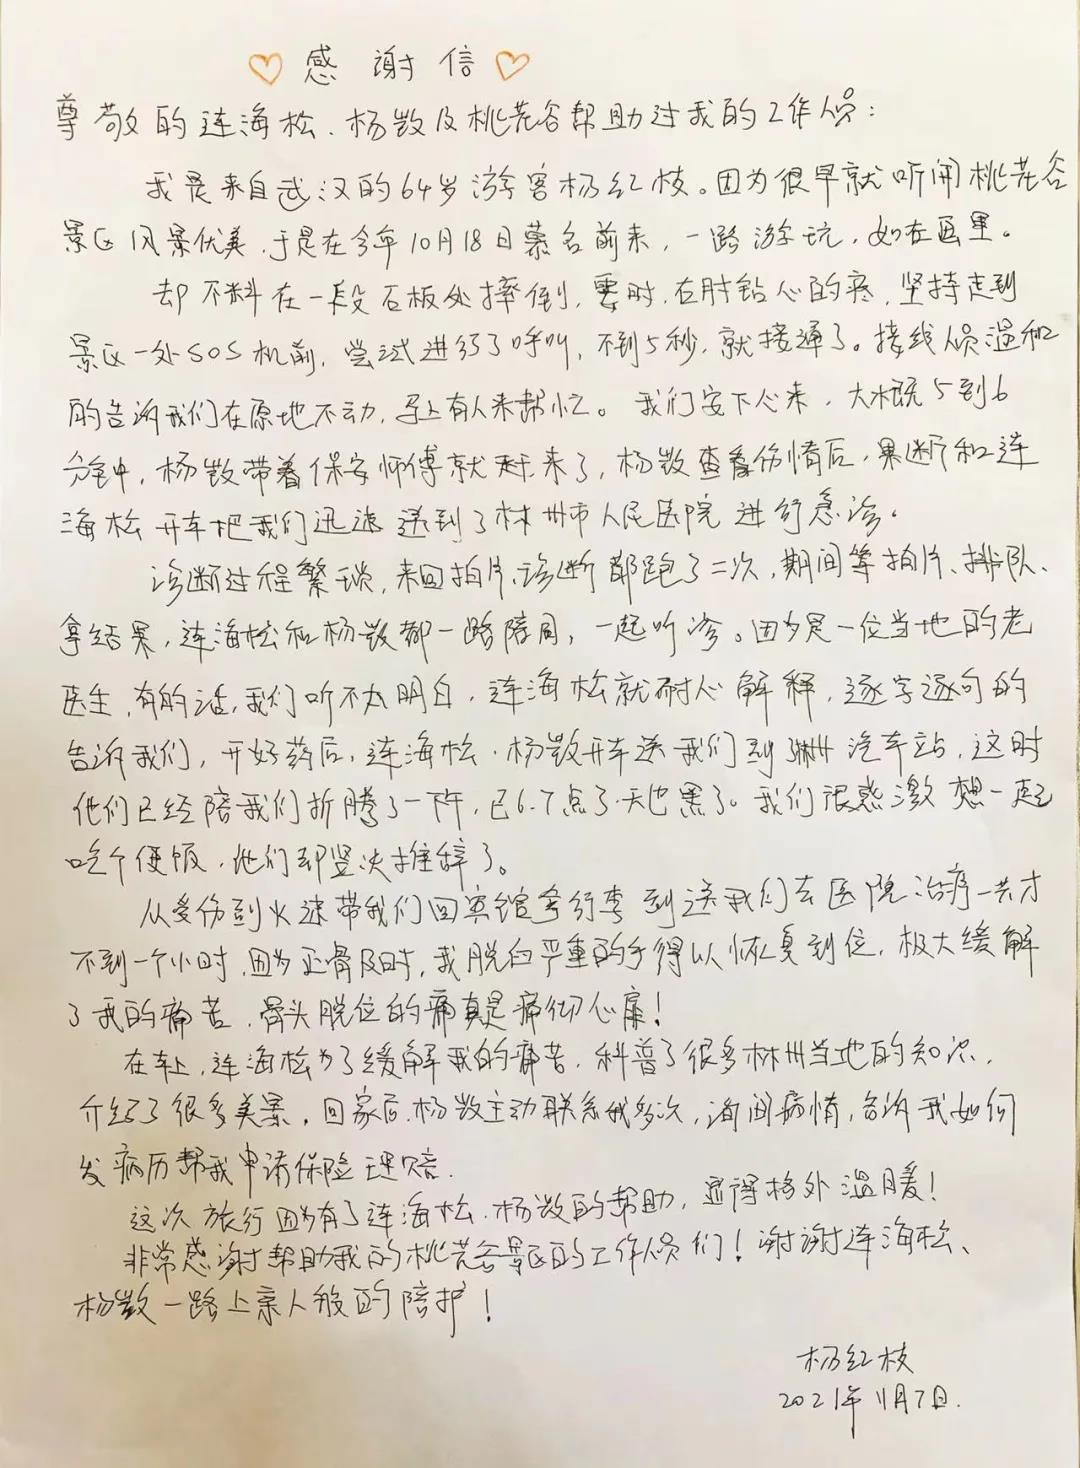 感谢信
尊敬的连海松、杨数及桃花谷帮助过我的工作人员：
我是来自武汉的64岁游客杨红枝。因为很早就听闻桃花谷
景区风景优美，于是在今年10月18日慕名前来，一路游玩，如在画里。
却不料在一段石板处摔倒，霎时，右肘钻心的疼，坚持走到
景区一处SOS机前，尝试进行了呼叫，不到5秒，就接通了。接线人员温和
的告诉我们在原地不动，马上有人来帮忙。我们安下心来，大概5到6
分钟，杨数带着保安师傅就赶来了，杨数查看伤情后，果断和连
海松开车把我们迅速送到了林州市人民医院进行急诊。
诊断过程繁琐，来回拍片、诊断都跑了二次，期间等拍片、排队、
拿结果，连海松和杨数都一路陪同，一起听诊。因为是一位当地的老
医生，有的话，我们听不太明白，连海松就耐心解释，逐字逐句的
告诉我们，开好药后，连海松、杨数开车送我们到林州汽车站，这时
他们已经陪我们折腾了一下午，已6.7点了，天也黑了。我们很感激想一起
吃个便饭，他们却坚决推辞了。
从受伤到火速带我们回宾馆拿行李到送我们去医院治疗一共才
不到一个小时，因为正骨及时，我脱臼严重的手得以恢复到位，极大缓解
了我的痛苦，骨头脱位的痛真是痛彻心扉！
在车上，连海松为了缓解我的痛苦，科普了很多林州当地的知识，
介绍了很多美景。回家后，杨数主动联系我多次，询问病情，告诉我如何
发病历帮我申请保险理赔.
这次旅行因为有了连海松、杨数的帮助，显得格外温暖！
非常感谢帮助我的桃花谷景区的工作人员们！谢谢连海松、
杨数一路上亲人般的陪护！
杨红枝
2021年11月7日.